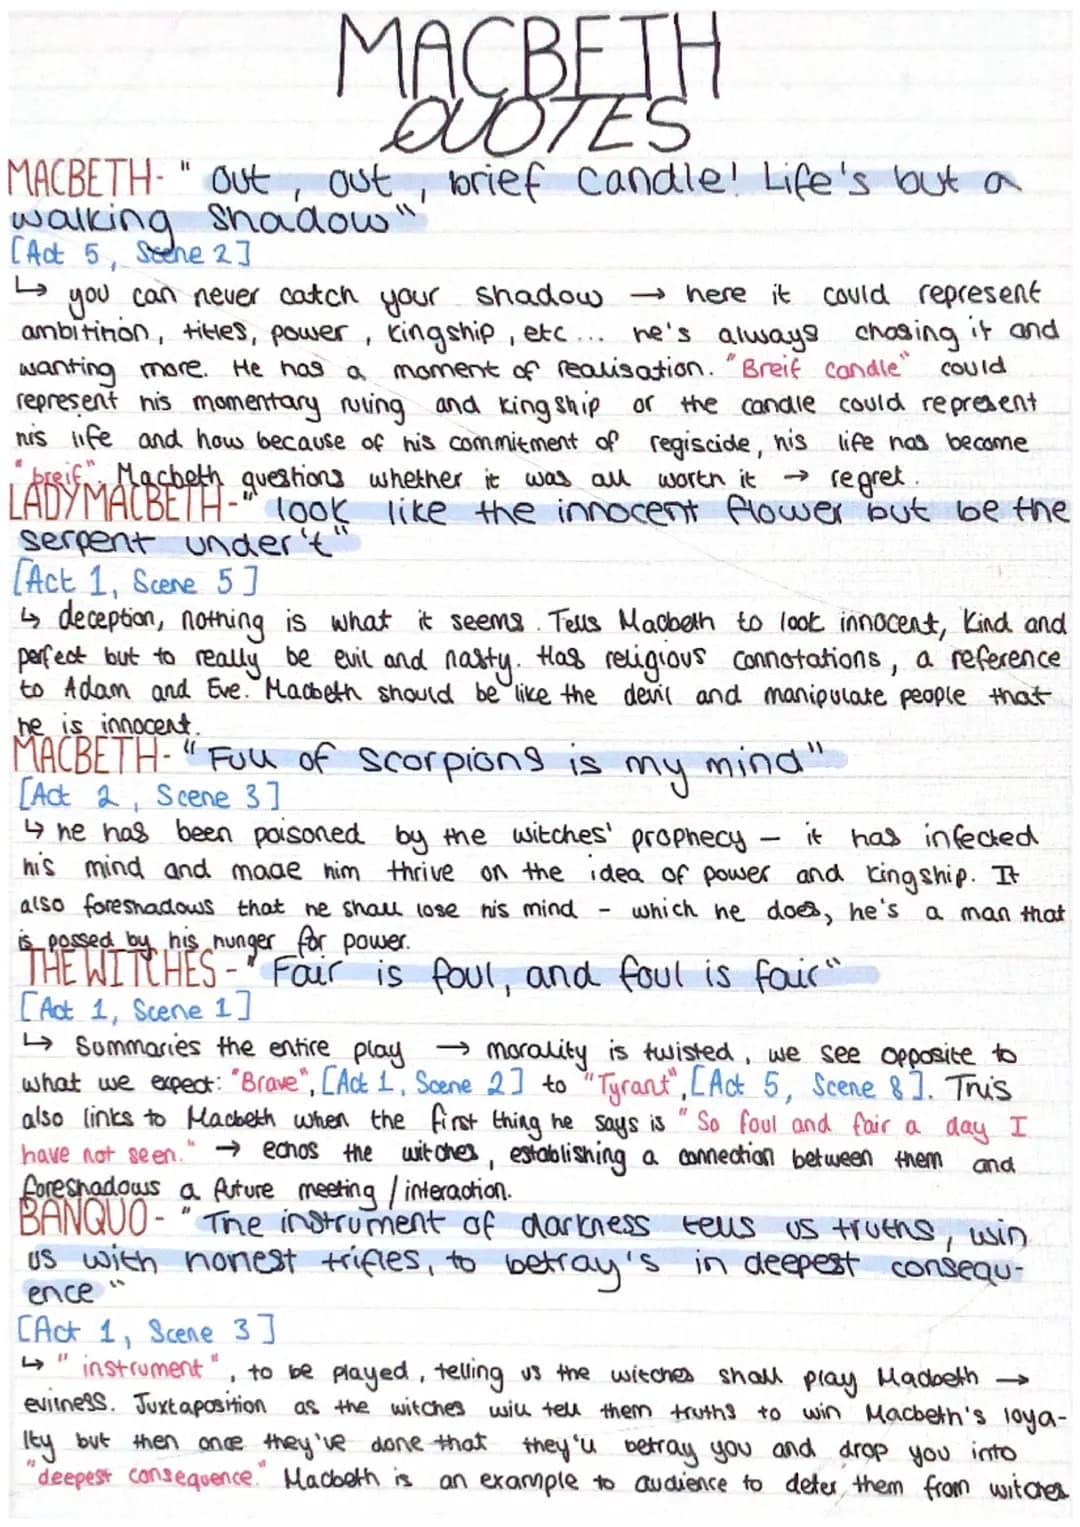 MACBETH
QUOTES
MACBETH- " Out , out , brief candle! Life's but a
walking shadow"
[Act 5, Scene 2]
↳ you can never catch your shadow → here it could represent
ambitinon, titles, power , kingship , etc... he's always chasing it and
wanting more. He has a moment of realisation. "Breif candle" could
represent his momentary ruling and kingship or the candle could represent
his life and how because of his commitment of regiscide, his life has become
"breif". Macbeth questions whether it was all worth it → regret.
LADY MACBETH-" look like the innocent flower but be the
serpent under't"
[Act 1, Scene 5]
↳ deception, nothing is what it seems. Tells Macbeth to look innocent, kind and
perfect but to really be evil and nasty. Has religious connotations, a reference
to Adam and Eve. Macbeth should be like the devil and manipulate people that
he is innocent.
MACBETH- "Full of scorpions is my mind"
[Act 2, Scene 3]
↳ he has been poisoned by the witches' prophecy – it has infected
his mind and made him thrive on the idea of power and kingship. It
also foreshadows that he shall lose his mind - which he does, he's a man that
is possed by his hunger for power.
THE WITCHES -" Fair is foul, and foul is fair"
[Act 1, Scene 1]
↳ Summaries the entire play → morality is twisted, we see opposite to
what we expect: "Brave", [Act 1, Scene 2] to "Tyrant", [Act 5, Scene 8]. This
also links to Macbeth when the first thing he says is "So foul and fair a day I
have not seen." → echos the witches, establishing a connection between them and
foreshadows a future meeting / interaction.
BANQUO- "The instrument of darkness tells us truths, win
us with honest trifles, to betray's in deepest consequ-
ence"
[Act 1, Scene 3]
↳ "instrument", to be played, telling us the witches shall play Macbeth →
evilness. Juxtaposition as the witches will tell them truths to win Macbeth's loya-
lty but then once they've done that they'll betray you and drop you into
"deepest consequence." Macbeth is an example to audience to deter them from witches.